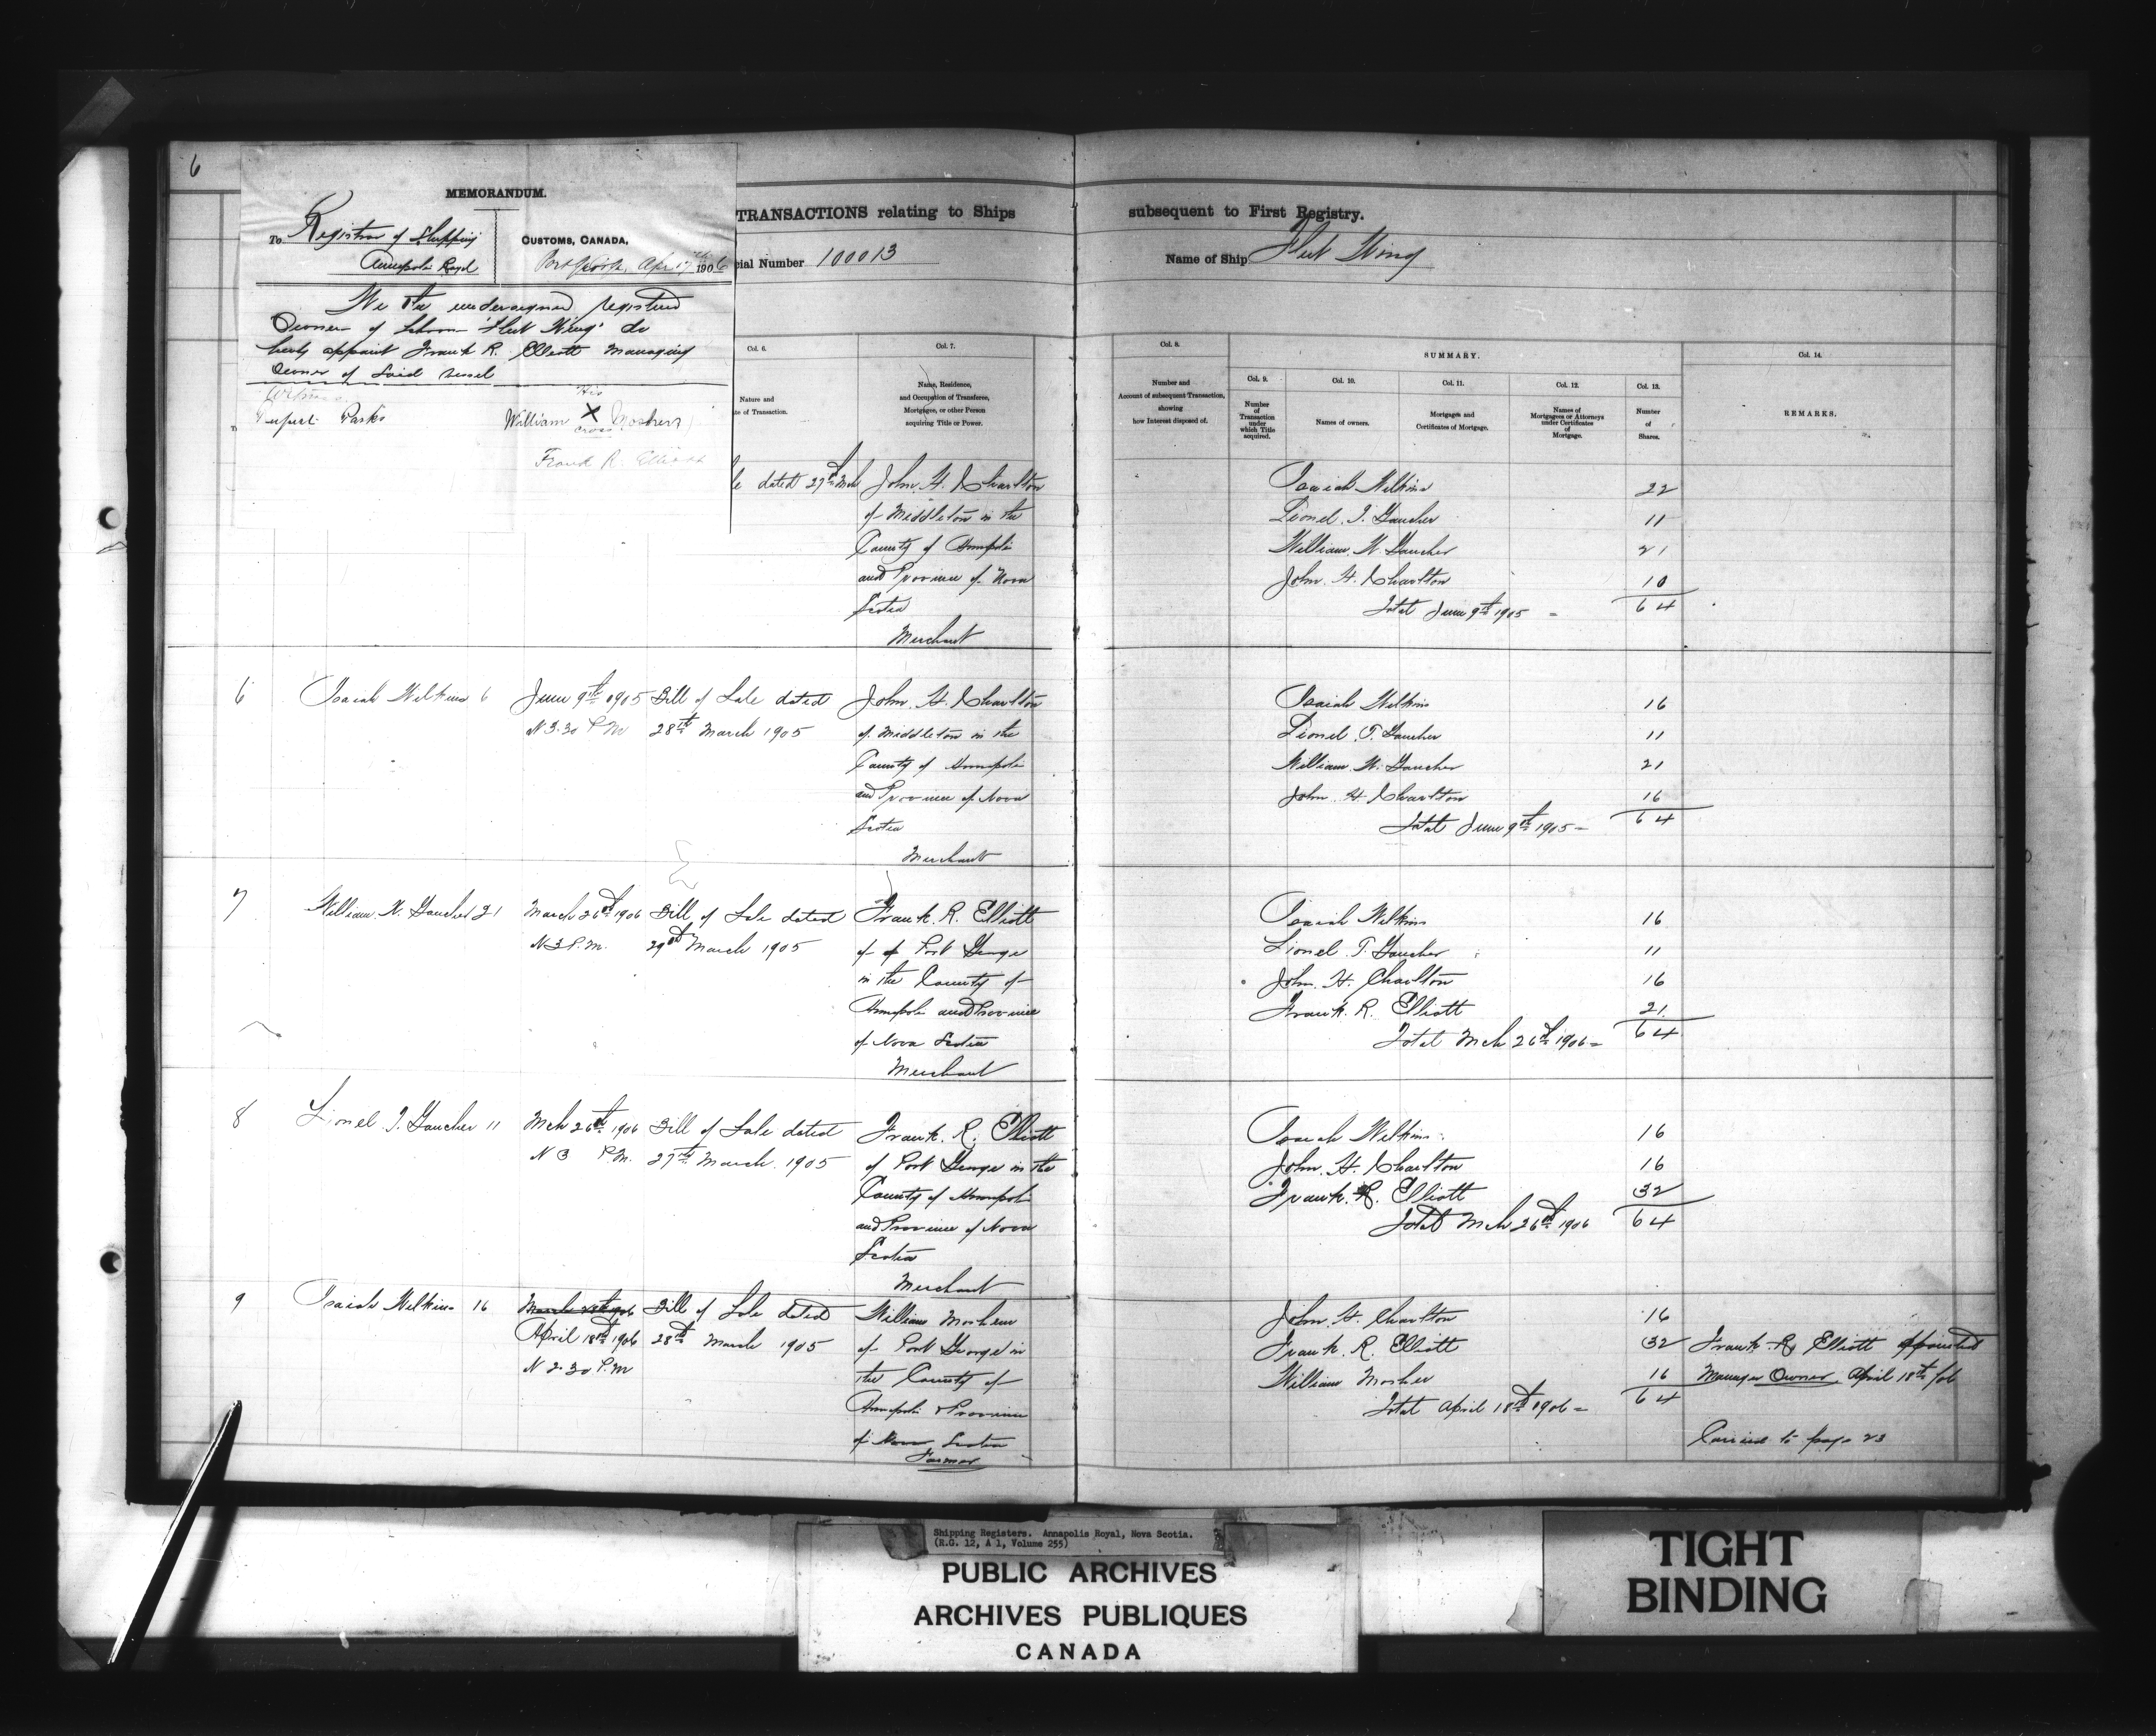 6
MEMORANDUM.
To Registrar of Shipping
Annapolis Royal
CUSTOMS, CANADA,
Apr 17th 1906
We the undersigned registered
Owner of Schooner "Fleet Wing" do
herby appoint Frank R. Elliott Managing
Owner of Said vessel
Witness
Parks
His
William X Mosher
cross
Frank R. Elliott
TRANSACTIONS relating to Ships
subsequent to First Registry.
cial Number 100013
Name of Ship Fleet Wing
Col. 6.
Nature and
te of Transaction.
Col. 7.
Name, Residence,
and Occupation of Transferee,
Mortgagee, or other Person
acquiring Title or Power.
Col. 8.
Number and
Account of subsequent Transaction,
showing
how Interest disposed of.
SUMMARY.
Col. 9.
Number
of
Transaction
under
which Title
acquired.
Col. 10.
Names of owners.
Col. 11.
Mortgages and
Certificates of Mortgage.
Col. 12.
Names of
Mortgagees or Attorneys
under Certificates
of
Mortgage.
Col. 13.
Number
of
Shares.
Col. 14.
REMARKS.
le dated 27th Mch
John. H. Charlton
of Middleton in the
County of Annapolis
and Province of Nova
Scotia
Merchant
Isaiah Wilkins 22
Lionel. T. Gaucher 11
William. W. Gaucher 21
John. H. Charlton 10
Total June 9th 1905 = 64
6 Isaiah Wilkins 6 June 9th 1905 Bill of Sale dated
N 3.30 P.M 28th March 1905
John. H. Charlton
of Middleton in the
County of Annapolis
and Province of Nova
Scotia
Merchant
Isaiah Wilkins 16
Lionel. T. Gaucher 11
William W. Gaucher 21
John. H. Charlton 16
Total June 9th 1905 = 64
7 William. W. Gaucher 21 March 26th 1906 Bill of Sale dated
N 3 P.M. 29th March 1905
Frank. R. Elliott
of of Port George
in the County of
Annapolis and Province
of Nova Scotia
Merchant
Isaiah Wilkins 16
Lionel T. Gaucher 11
John. H. Charlton 16
Frank. R. Elliott 21
Total Mch 26th 1906 = 64
8 Lionel T. Gaucher 11 Mch 26th 1906 Bill of Sale dated
N 3 P.M. 27th March. 1905
Frank. R. Elliott
of Port George in the
County of Annapolis
and Province of Nova
Scotia
Merchant
Isaiah Wilkins 16
John. H. Charlton 16
Frank. R. Elliott 32
Total Mch 26th 1906 64
9 Isaiah Wilkins 16 March 26th 1906 Bill of Sale dated
April 18th 1906 28th March 1905
N 2.30 P.M
William Mosher
of Port George in
the County of
Annapolis & Province
of Nova Scotia
Farmer
John. H. Charlton 16
Frank. R. Elliott 32
William Mosher 16
Total April 18th 1906 = 64
Frank R Elliott appointed
Manager Owner April 18th /06
Carried to page 23
Shipping Registers. Annapolis Royal, Nova Scotia.
(R.G. 12, A 1, Volume 255)
PUBLIC ARCHIVES
ARCHIVES PUBLIQUES
CANADA
TIGHT
BINDING